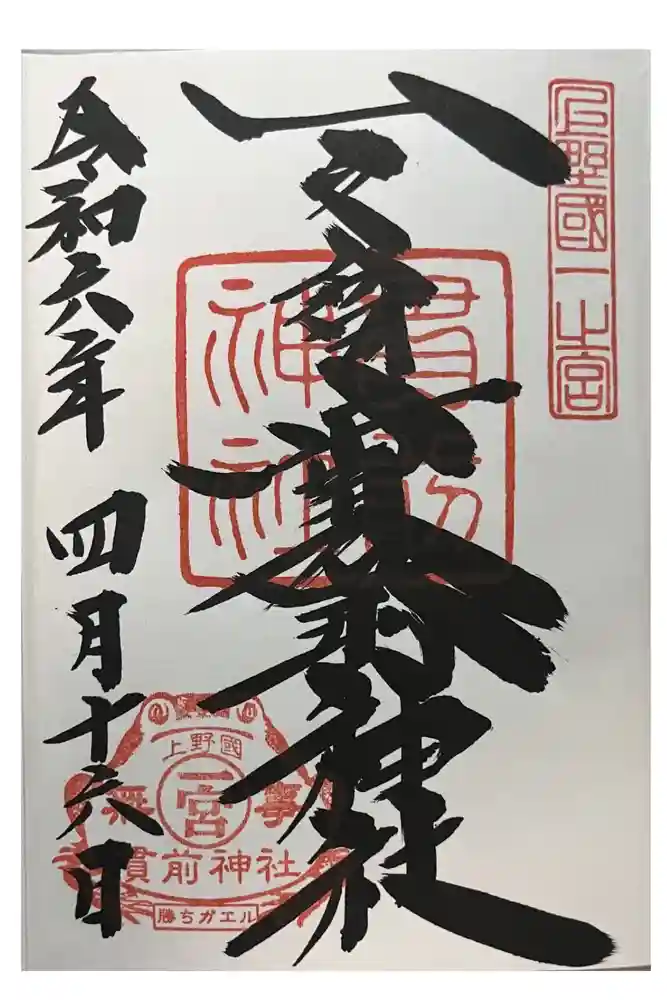 上野國一之宮
一之宮貫前神社
貫前神社
令和六年 四月十六日
上野國
一宮
無事
貫前神社
勝ちガエル